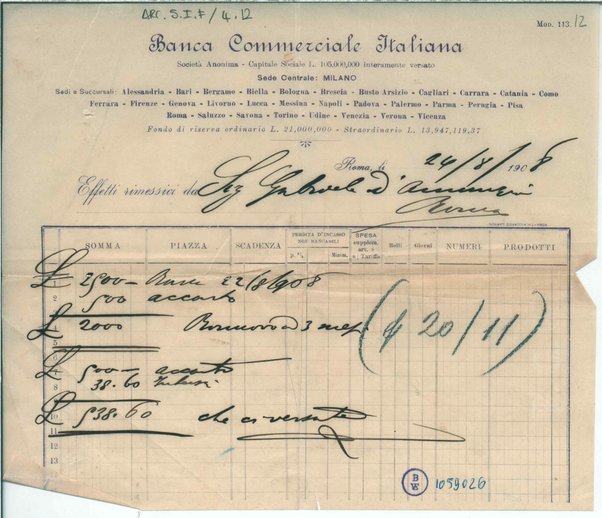 ARC. S.I.F/4.12
Mod. 113./2
Banca Commerciale Italiana
Società Anonima - Capitale Sociale L. 105,000,000 interamente versato
Sede Centrale: MILANO
Sedi e Succursali: Alessandria - Bari - Bergamo - Biella - Bologna - Brescia - Busto Arsizio - Cagliari - Carrara - Catania - Como
Ferrara - Firenze - Genova - Livorno - Lucca - Messina - Napoli - Padova - Palermo - Parma - Perugia - Pisa
Roma - Saluzzo - Savona - Torino - Udine - Venezia - Verona - Vicenza
Fondo di riserva ordinario L. 21,000,000 - Straordinario L. 13,947,119,37
Roma, li 24/8/1908
Effetti rimessici da Sig Gabriele d'Annunzio
Roma
SOMMA PIAZZA SCADENZA PERDITA D'INCASSO NON BANCABILI p. % Minim. SPESA supplem. arc. e Tariffa Bolli Giorni NUMERI PRODOTTI
1
£ 2500 - 22/8/908
500 acconto
£ 2000 Rinnovo a 3 mesi
(d 20/11)
500 - acconto
38.60
£ 538.60 che ci versate
10
11
12
13
B E 1059026